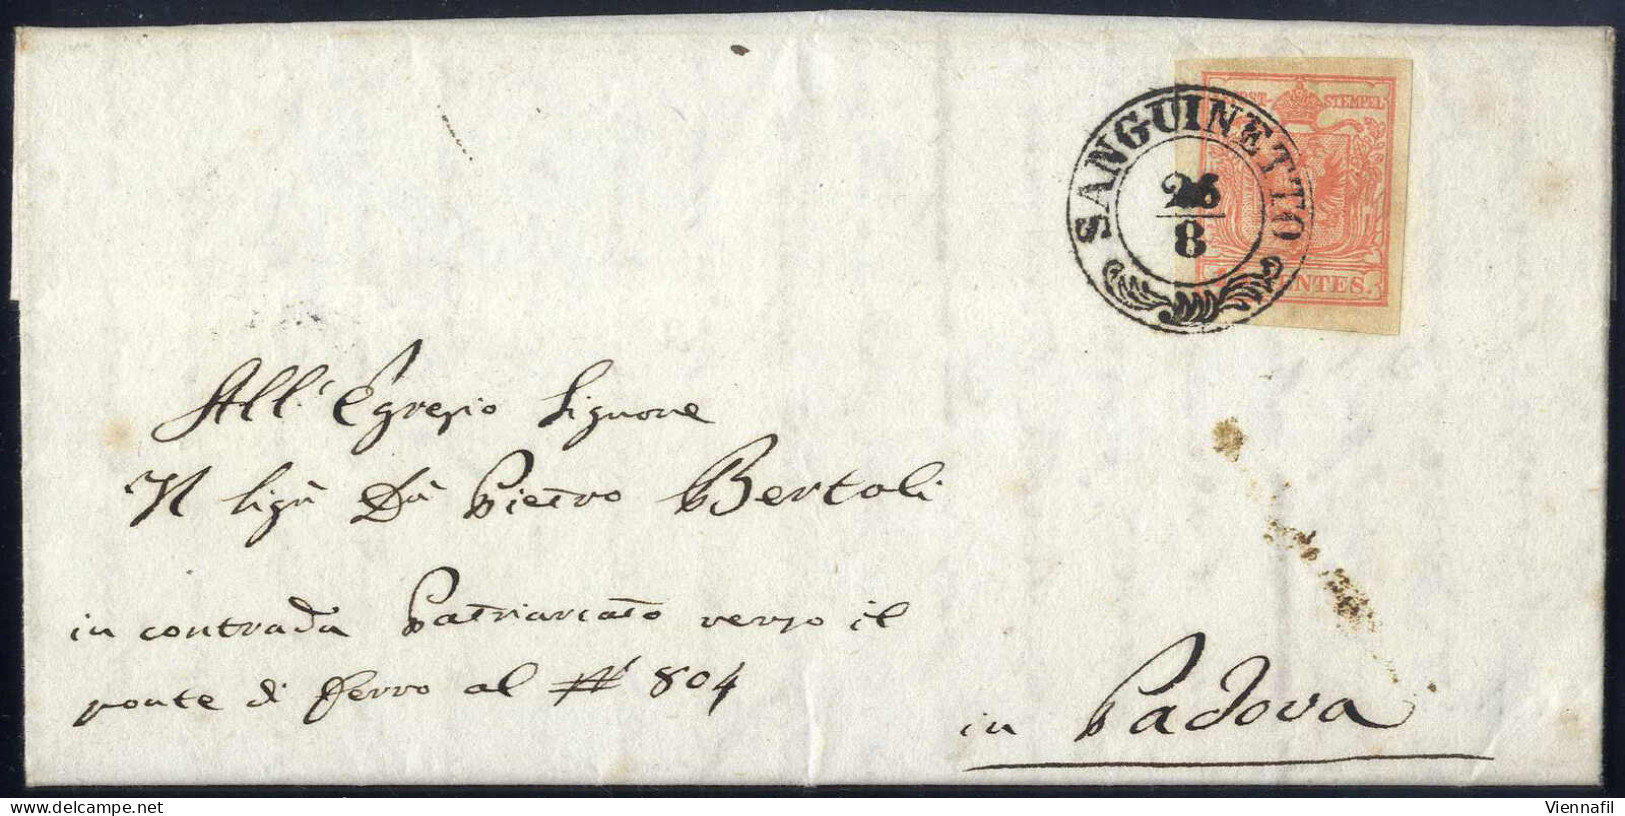 KKPOST-STEMPEL
SANGUINETTO
26
8
CENTES.
All' Egregio Signore
Il Sigr Dn Pietro Bertoli
in contrada Patriarcato verso il
ponte di ferro al N 804
in Padova
www.delcampe.net
Viennafil